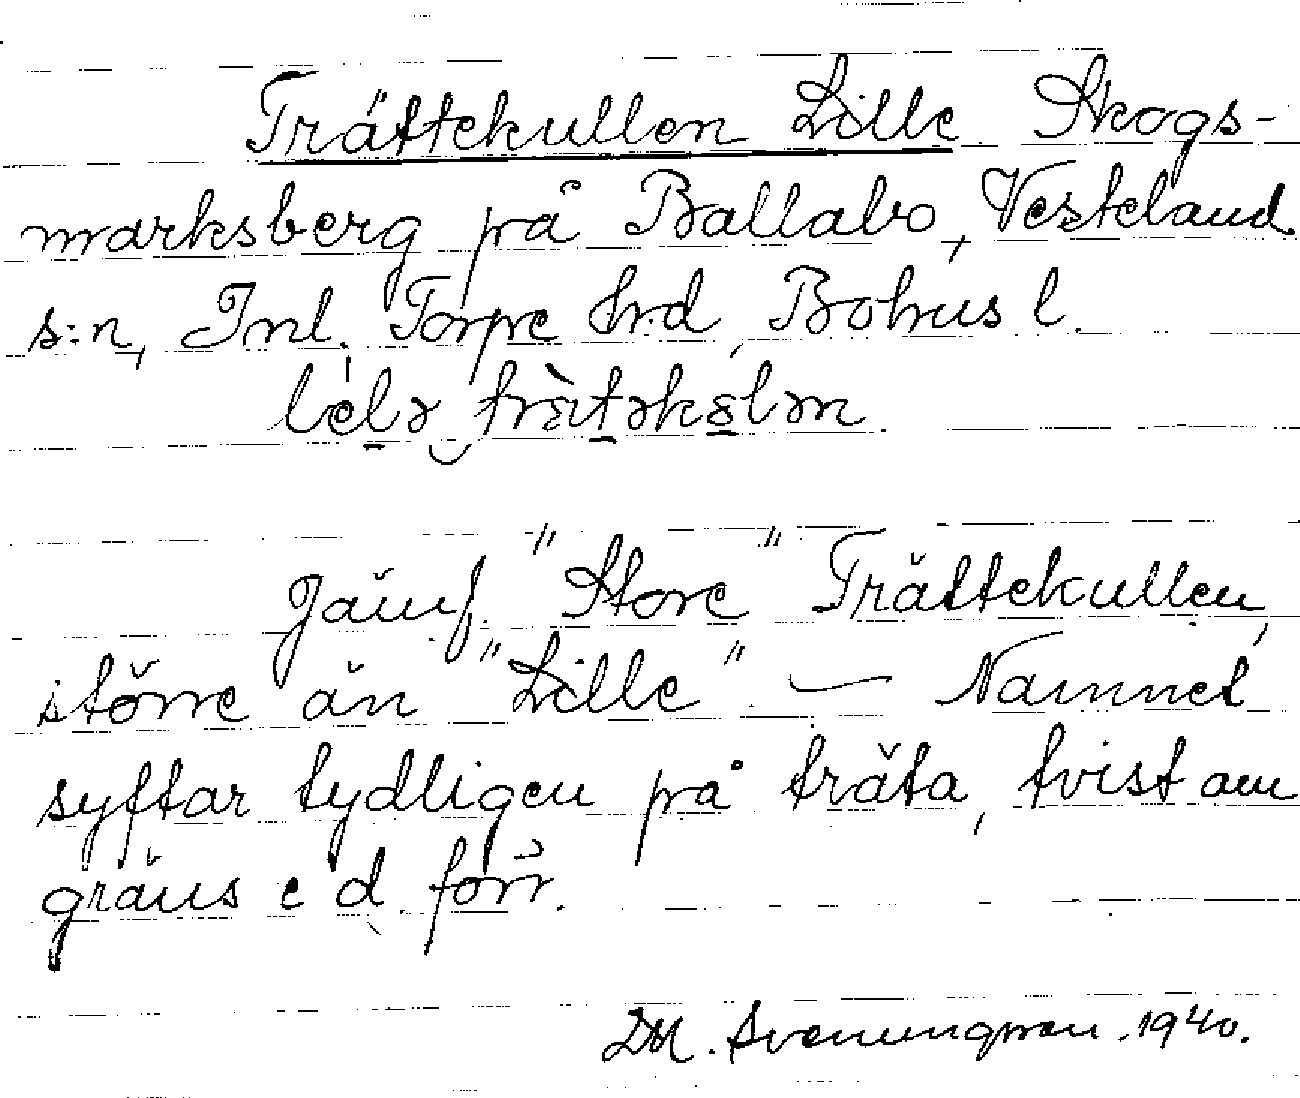 Trättekullen Lille Skogs-
marksberg på Ballabo, Vesteland
s:n, Inl. Torpe hrd, Bohus l.
Jämf. "Store" Trättekullen,
större än "Lille" — Namnet
syftar tydligen på träta, tvist om
gräns e d. förr.
D M. Svenungsson. 1940.